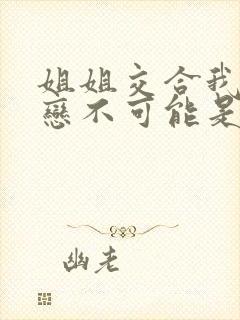 姐姐交合我
戀不可能是
幽老